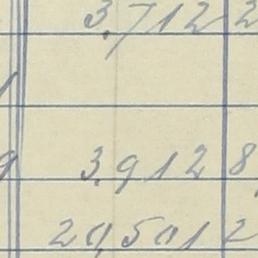 3.712 2
3.912 8
20,501 2